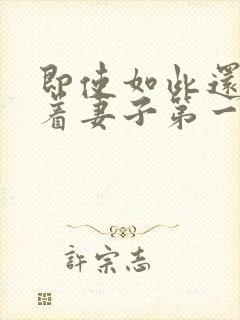 即使如此還
着妻子第一
許宗志